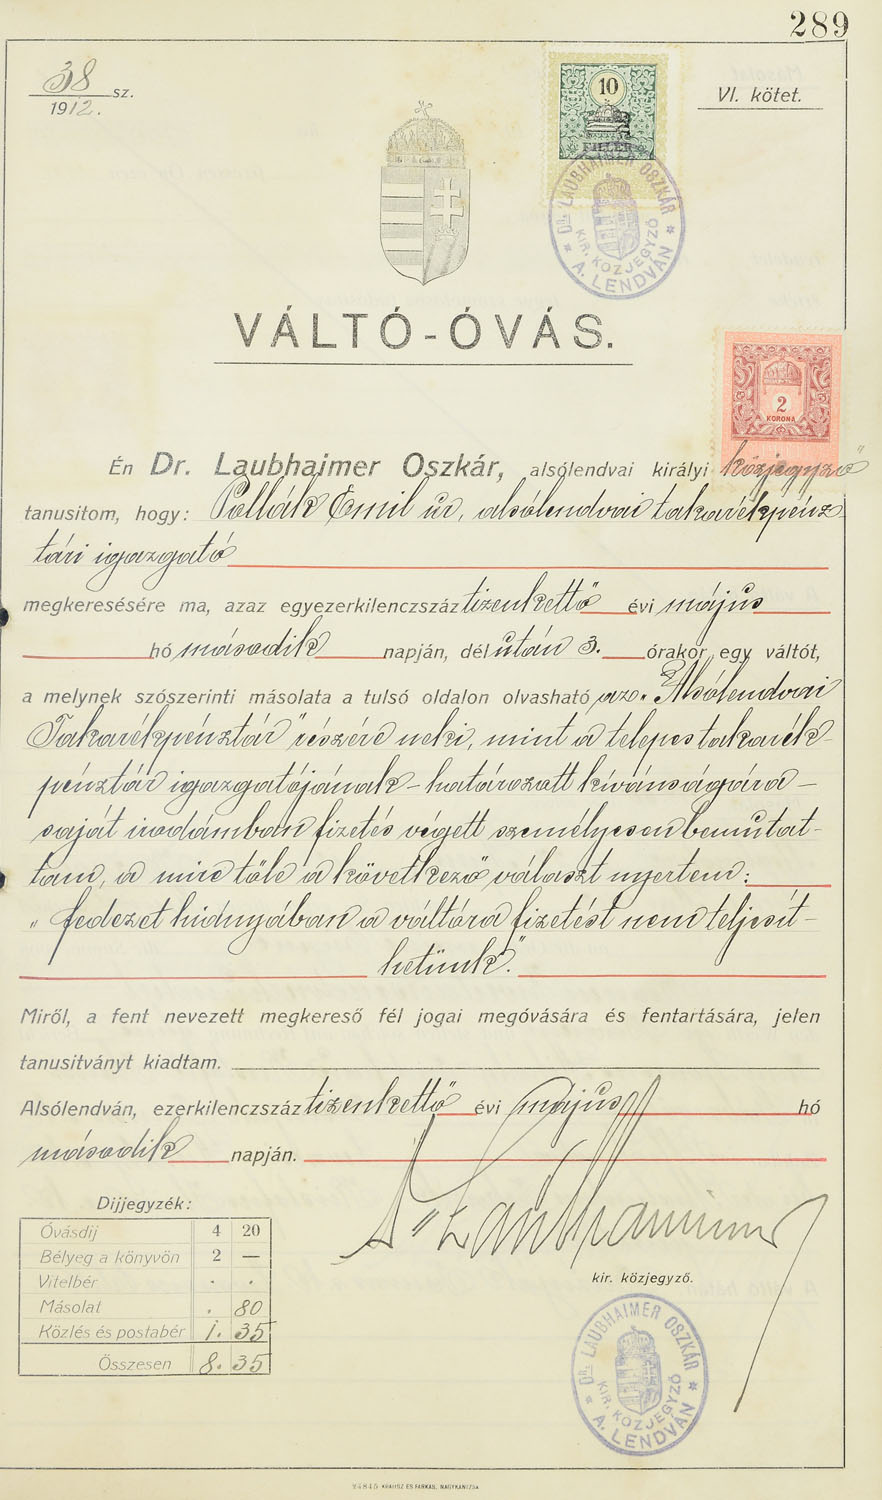 289
38 sz.
1912.
VI. kötet.
10
FILLÉR
Dr. LAUBHAIMER OSZKÁR
KIR. KÖZJEGYZŐ
* A. LENDVÁN *
VÁLTÓ-ÓVÁS.
2
KORONA
Én Dr. Laubhaimer Oszkár, alsólendvai királyi közjegyző
tanusitom, hogy: Pollák Emil úr, alsólendvai takarékpénz-
tári igazgató
megkeresésére ma, azaz egyezerkilenczszáz tizenkettő évi május
hó második napján, dél után 3. órakor egy váltót,
a melynek szószerinti másolata a tulsó oldalon olvasható az „Alsólendvai
Takarékpénztár" részére neki, mint a telepes takarék-
pénztár igazgatójának – határozott kívánságára –
saját irodámban fizetés végett személyesen bemutat-
tam, a mire tőle a következő választ nyertem:
„fedezet hiányában a váltóra fizetést nem teljesít-
hetünk."
Miről, a fent nevezett megkereső fél jogai megóvására és fentartására, jelen
tanusitványt kiadtam.
Alsólendván, ezerkilenczszáz tizenkettő évi május hó
második napján.
Dijjegyzék:
Óvásdij 4 20
Bélyeg a könyvön 2 —
Vitelbér . .
Másolat . 80
Közlés és postabér 1. 35
Összesen 8. 35
Dr Laubhaimer
kir. közjegyző.
Dr. LAUBHAIMER OSZKÁR
KIR. KÖZJEGYZŐ
* A. LENDVÁN *
24845 KRAUSZ ÉS FARKAS, NAGYKANIZSA